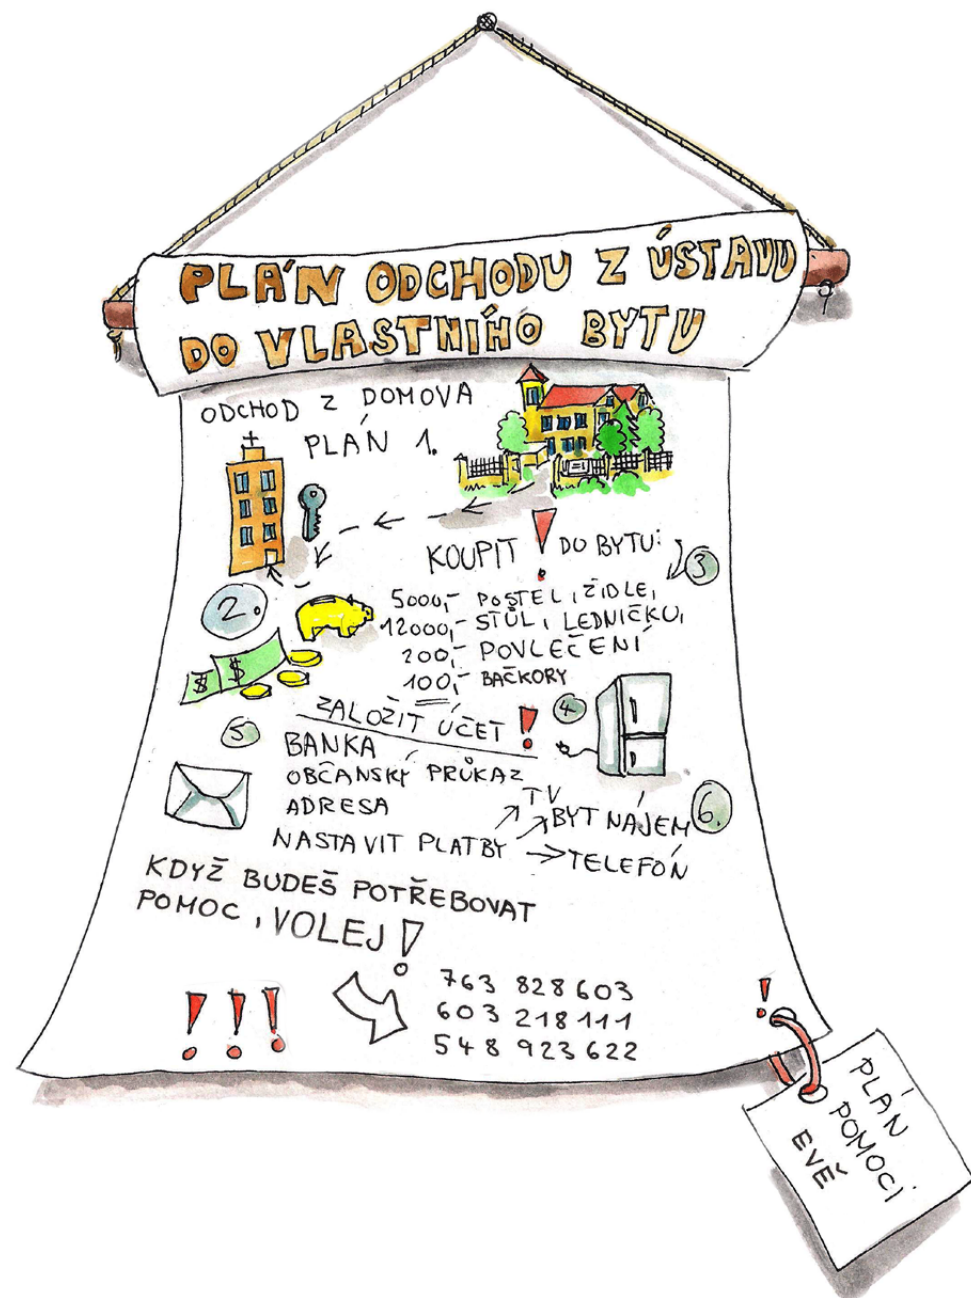 PLÁN ODCHODU Z ÚSTAVU
DO VLASTNÍHO BYTU
ODCHOD Z DOMOVA
PLÁN 1.
KOUPIT ! DO BYTU:
3
2.
5000,- POSTEL, ŽIDLE,
12000,- STŮL, LEDNIČKU,
200,- POVLEČENÍ
100,- BAČKORY
$ $
ZALOŽIT ÚČET !
4
5
BANKA
OBČANSKÝ PRŮKAZ
ADRESA
TV
BYT NÁJEM
6.
NASTAVIT PLATBY
TELEFÓN
KDYŽ BUDEŠ POTŘEBOVAT
POMOC, VOLEJ!
763 828 603
603 218 111
548 923 622
!!!
!
PLÁN
POMOCI
EVĚ